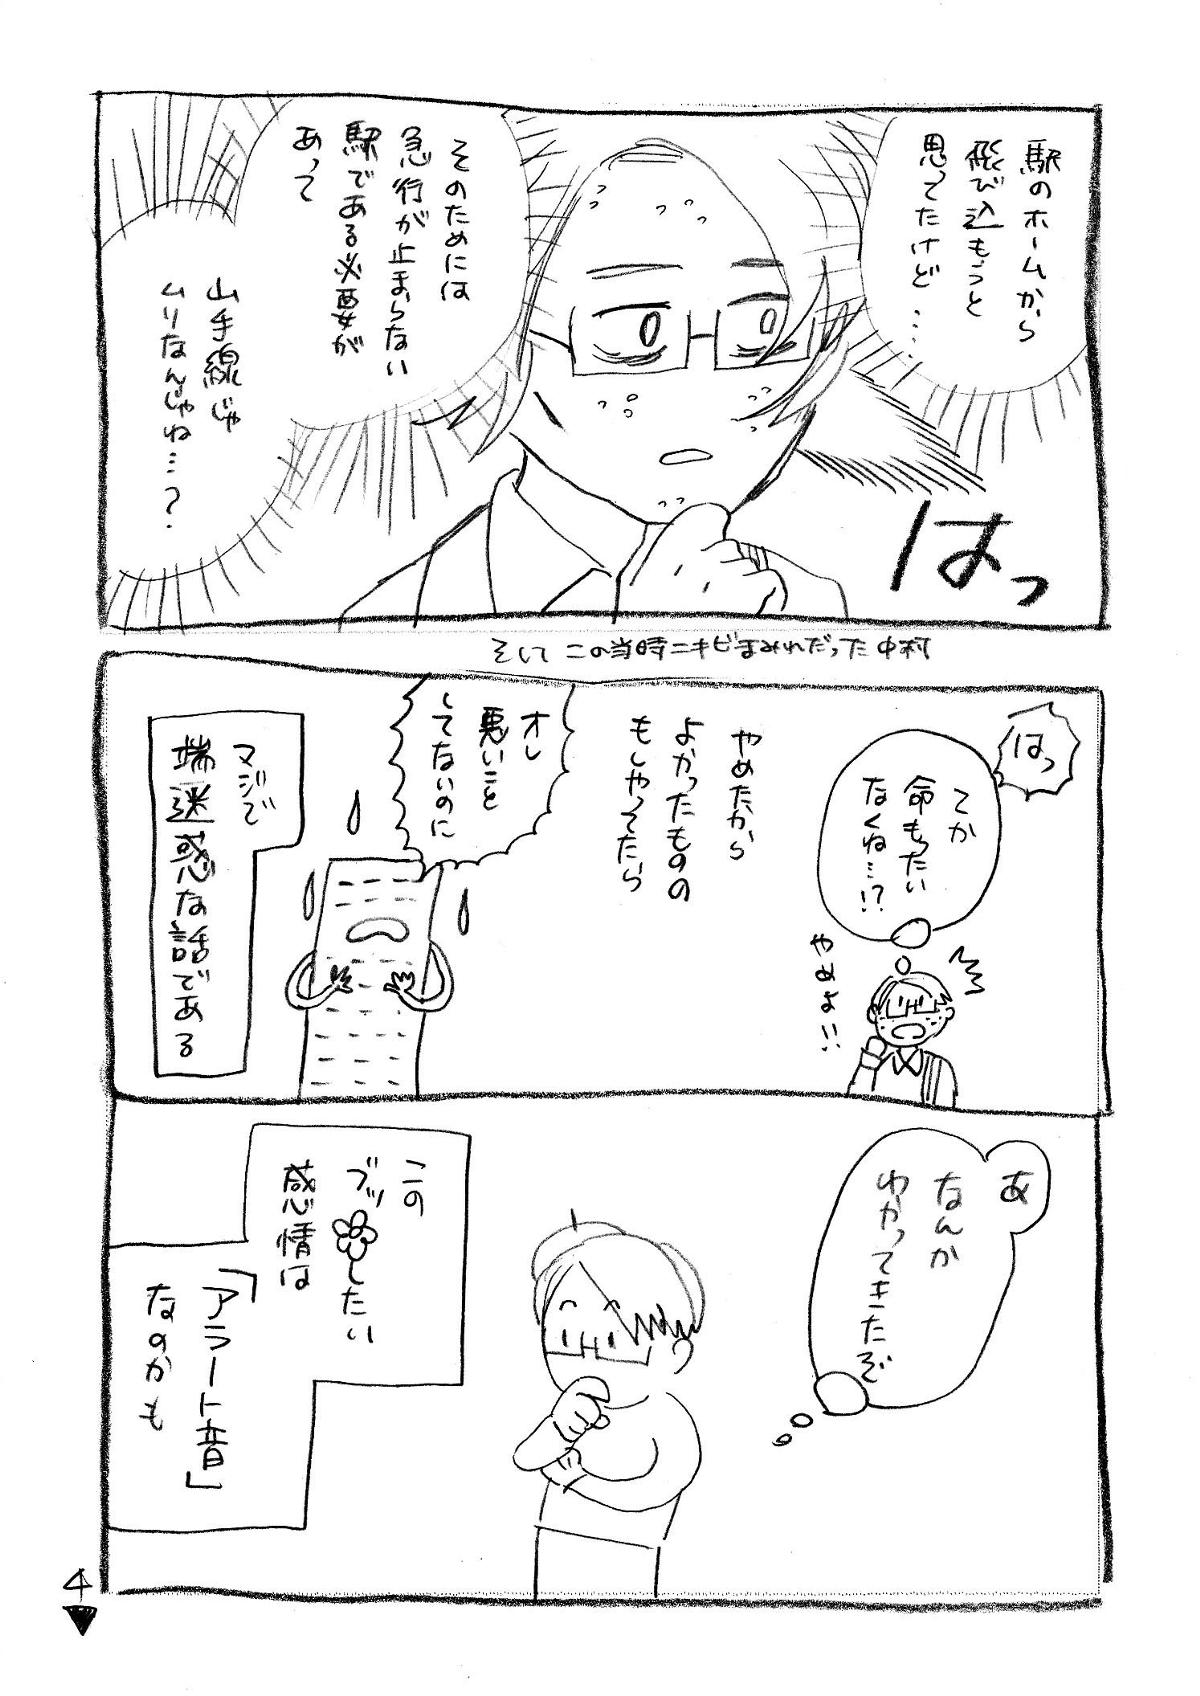 駅のホームから
飛び込もうと
思ってたけど……
はっ
そのためには
急行が止まらない
駅である必要が
あって
山手線じゃ
ムリなんじゃね…?
そして この当時ニキビまみれだった中村
はっ
てか
命もったい
なくね…!?
やめよ!!
やめたから
よかったものの
もしやってたら
オレ
悪いこと
してないのに
マジで
端迷惑な話である
あ
なんか
わかってきたぞ
この
ブッ したい
感情は
「アラート音」
なのかも
4